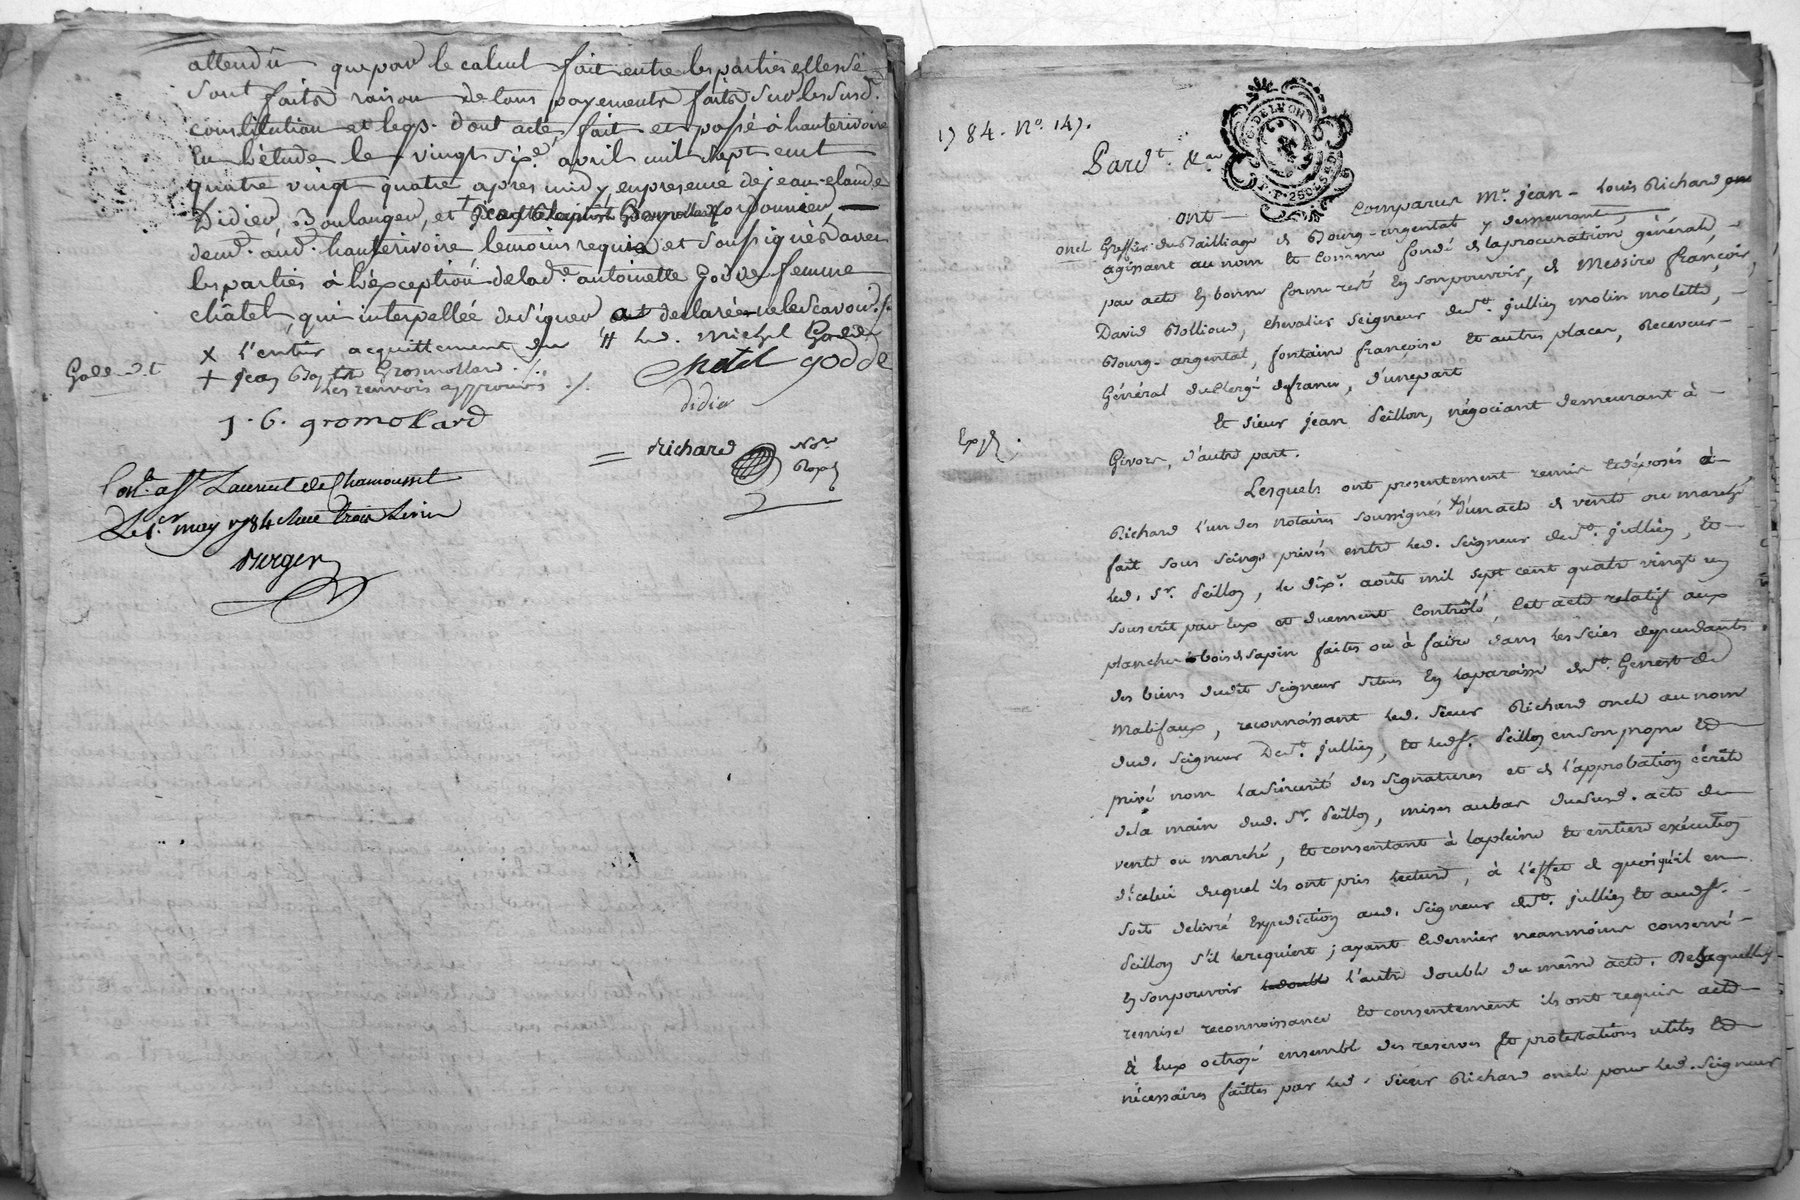 attendû que par le calcul fait entre les parties elles se
sont faites raison de tous payements faits sur les susd.
constitution et legs. dont acte fait et passé à hauterivoire
En l'étude le vingt sixe. avril mil sept cent
quatre vingt quatre apres midy en presence de jean-claude
Didier Boulanger, et cordonnier
demt. aud. hauterivoire temoins requis et soussignés avec
les parties à l'exception de lade. antoinette Godde femme
châtel, qui interpellée de signer a declarée ne le scavoir.
x l'entier acquittement du # led. michel Godde
Godde
+ jean Bapte Grosmollard
les renvois approuvés
Chatel godde
didier
J. B. gromollard
Richard Nore
Royal
Conlé. à St. Laurent de Chamousset
Le 1er. may 1784 Reçu trois Livres
Berger
1784. No. 147.
G. DE LYON
Pardt. &a
ont comparus Mr. jean-Louis Richard
oncl Greffier du Bailliage de Bourg-argental y demeurant,
agissant au nom et comme fondé de la procuration générale,
par acte en bonne forme resté en son pouvoir, de Messire françois,
David Bollioud, chevalier seigneur de st. jullien molin molette,
Bourg-argental, fontaine françoise et autres places, Receveur
Général du Clergé de france, d'une part
Et sieur jean Peillon, négociant demeurant à
Givors, d'autre part.
Exp.
Lesquels ont presentement remis et déposés à
Richard l'un des notaires soussignés d'un acte de vente ou marché
fait sous seings privés entre led. seigneur de st. jullien, et
led. sr. Peillon, le dixe. août mil sept cent quatre vingt un
souscrit par eux et duement controlé cet acte relatif aux
planches bois de sapin faites ou à faire dans les scies dependantes
des biens dudit seigneur situés en la paroisse de st. Genest de
Malifaux, reconnoissant led. sieur Richard oncle au nom
dud. seigneur De st. jullien, et led. sr. Peillon en son propre et
privé nom la sincerité des signatures et de l'approbation écrite
de la main dud. sr. Peillon, mises au bas du susd. acte de
vente ou marché, et consentant à la pleine et entiere exécution
d'icelui duquel ils ont pris lecture, à l'effet de quoi qu'il en
soit delivré Expedition aud. seigneur de st. jullien et aud. sr.
Peillon s'il le requiert; ayant le dernier neanmoins conservé
en son pouvoir le double l'autre double du même acte. De laquelle
remise reconnoissance et consentement ils ont requis acte
à eux octroyé ensemble des reserves et protestations utiles et
nécessaires faites par led. sieur Richard oncle pour led. seigneur